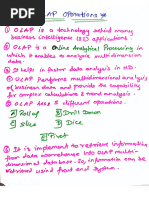 AP Operations
① OLAP is a technology behind many
business intelligence (BI) applications
② OLAP is a Online Analytical Processing in
which it enables to analysis multidimension
data.
③ It helps in faster data analysis in MD.
④ OLAP performs multidimensional analysis
of business data and provide its capability
for complex calculations & trend analysis.
⑤ OLAP has 5 different operations.
A) Rollup B) Drill Down
C) Slice D) Dice
E) Pivot
⑥ It is implement to retrieve information
from data warehouse into OLAP multi-
dimensional database. So information can be
retrieved using food and system.